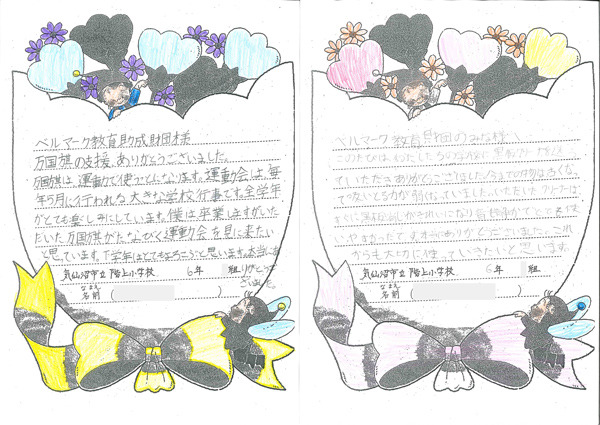 ベルマーク教育助成財団様
万国旗の支援、ありがとうございました。
万国旗は、運動会で使うことになります。運動会は、毎
年5月に行われる大きな学校行事です。全学年
がとても楽しみにしています。僕は卒業しますがいた
だいた万国旗がたなびく運動会を見に来たい
と思っています。下学年はとてもよろこぶと思います。本当にあ
りがとうご
ざいました。
気仙沼市立 階上小学校 6年 組
なまえ
名前 ( )
ベルマーク教育財団のみな様へ
このたびは、わたしたち
ていただきありがとうございました。今までの
て吸いとる力が弱くなっていました。いただいたクリーナーは
すぐに
いやすかったです。本当にありがとうございました。これ
からも大切に使っていきたいと思います。
気仙沼市立 階上小学校 6年 組
なまえ
名前 ( )